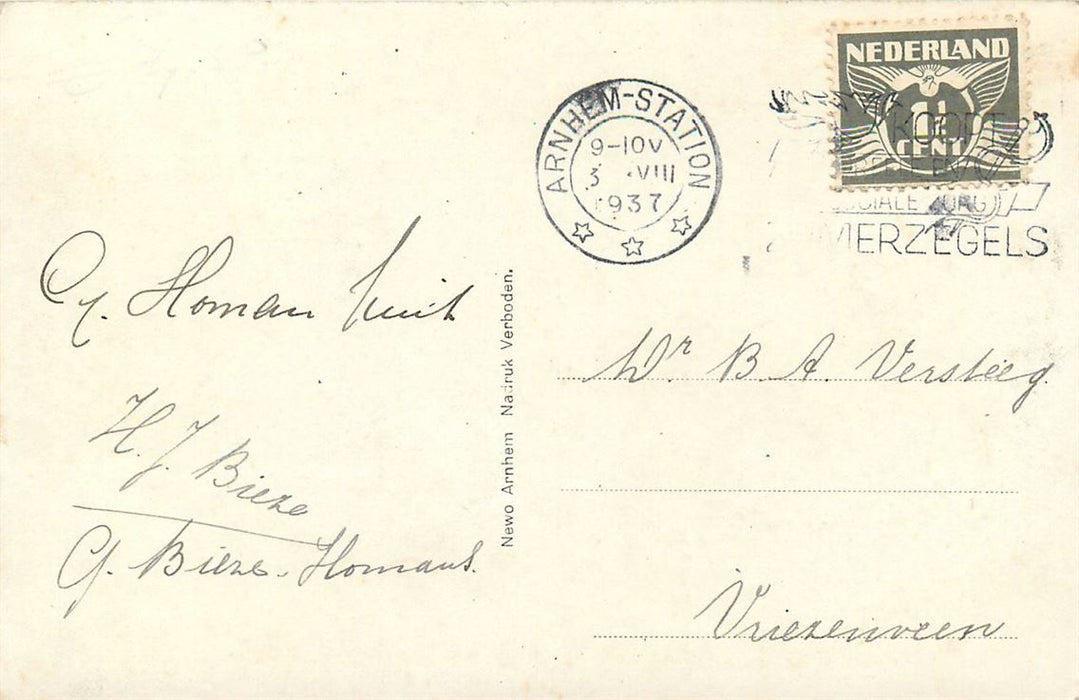 NEDERLAND
1½
CENT
ARNHEM-STATION
9-10V
3 VIII
1937
KOOPT
SOCIALE ZORG)
MERZEGELS
G. Homan
H. J. Bieze
G. Bieze-Homans.
Newo Arnhem Nadruk Verboden.
Wr B. A. Versteeg.
Vriezenveen